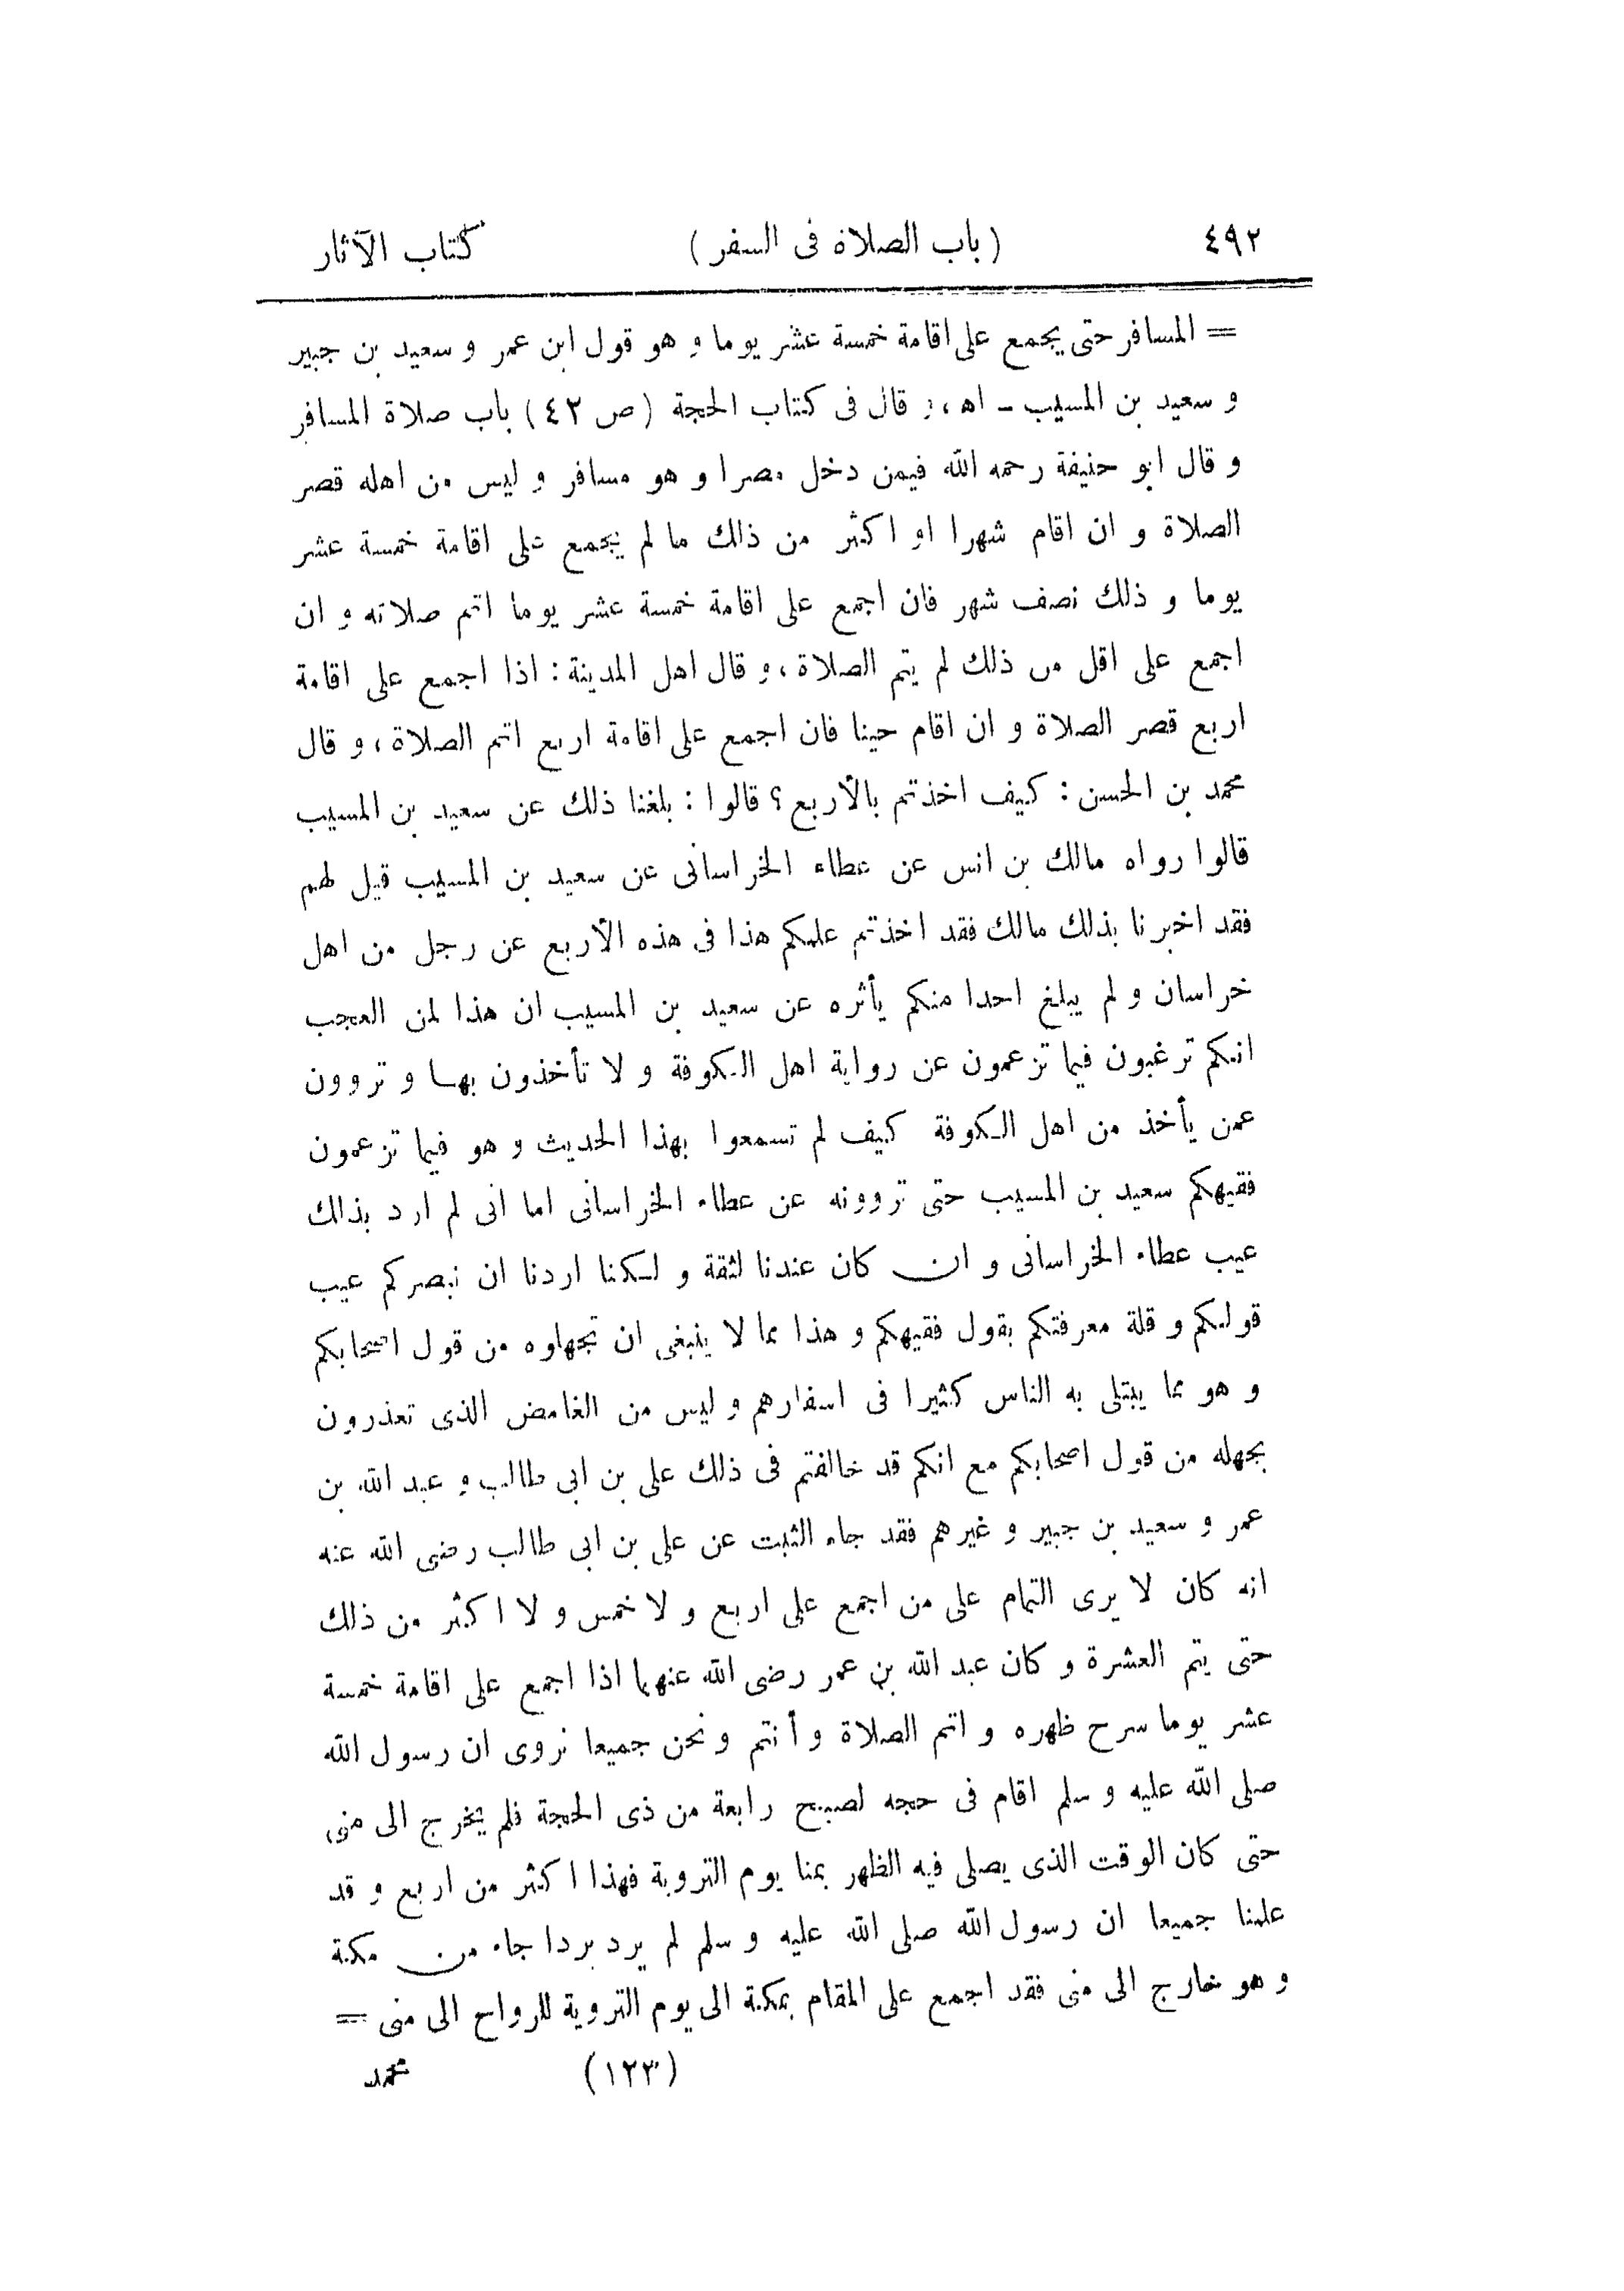 ٤٩٢ (باب الصلاة فى السفر) كتاب الآثار
= المسافر حتى يجمع على اقامة خمسة عشر يوما و هو قول ابن عمر و سعيد بن جبير
و سعيد بن المسيب - اه، و قال فى كتاب الحجة (ص ٤٣) باب صلاة المسافر
و قال ابو حنيفة رحمه الله فيمن دخل مصرا و هو مسافر و ليس من اهله قصر
الصلاة و ان اقام شهرا او اكثر من ذلك ما لم يجمع على اقامة خمسة عشر
يوما و ذلك نصف شهر فان اجمع على اقامة خمسة عشر يوما اتم صلاته و ان
اجمع على اقل من ذلك لم يتم الصلاة، و قال اهل المدينة: اذا اجمع على اقامة
اربع قصر الصلاة و ان اقام حينا فان اجمع على اقامة اربع اتم الصلاة، و قال
محمد بن الحسن: كيف اخذتم بالأربع؟ قالوا: بلغنا ذلك عن سعيد بن المسيب
قالوا رواه مالك بن انس عن عطاء الخراسانى عن سعيد بن المسيب قيل لهم
فقد اخبرنا بذلك مالك فقد اخذتم علمكم هذا فى هذه الأربع عن رجل من اهل
خراسان و لم يبلغ احدا منكم يأثره عن سعيد بن المسيب ان هذا لمن العجب
انكم ترغبون فيما تزعمون عن رواية اهل الكوفة و لا تأخذون بها و تروون
عمن يأخذ من اهل الكوفة كيف لم تسمعوا بهذا الحديث و هو فيما تزعمون
فقيهكم سعيد بن المسيب حتى تروونه عن عطاء الخراسانى اما انى لم ارد بذلك
عيب عطاء الخراسانى و ان كان عندنا لثقة و لكنا اردنا ان نبصركم عيب
قولكم و قلة معرفتكم بقول فقيهكم و هذا مما لا ينبغى ان تجهلوه من قول اصحابكم
و هو مما يبتلى به الناس كثيرا فى اسفارهم و ليس من الغامض الذى تعذرون
بجهله من قول اصحابكم مع انكم قد خالفتم فى ذلك على بن ابى طالب و عبد الله بن
عمر و سعيد بن جبير و غيرهم فقد جاء الثبت عن على بن ابى طالب رضى الله عنه
انه كان لا يرى التمام على من اجمع على اربع و لا خمس و لا اكثر من ذلك
حتى يتم العشرة و كان عبد الله بن عمر رضى الله عنهما اذا اجمع على اقامة خمسة
عشر يوما سرح ظهره و اتم الصلاة و أنتم و نحن جميعا نروى ان رسول الله
صلى الله عليه و سلم اقام فى حجه لصبح رابعة من ذى الحجة فلم يخرج الى منى
حتى كان الوقت الذى يصلى فيه الظهر بمنا يوم التروية فهذا اكثر من اربع و قد
علمنا جميعا ان رسول الله صلى الله عليه و سلم لم يرد بردا جاء من مكة
و هو خارج الى منى فقد اجمع على المقام بمكة الى يوم التروية للرواح الى منى =
(١٢٣) محمد